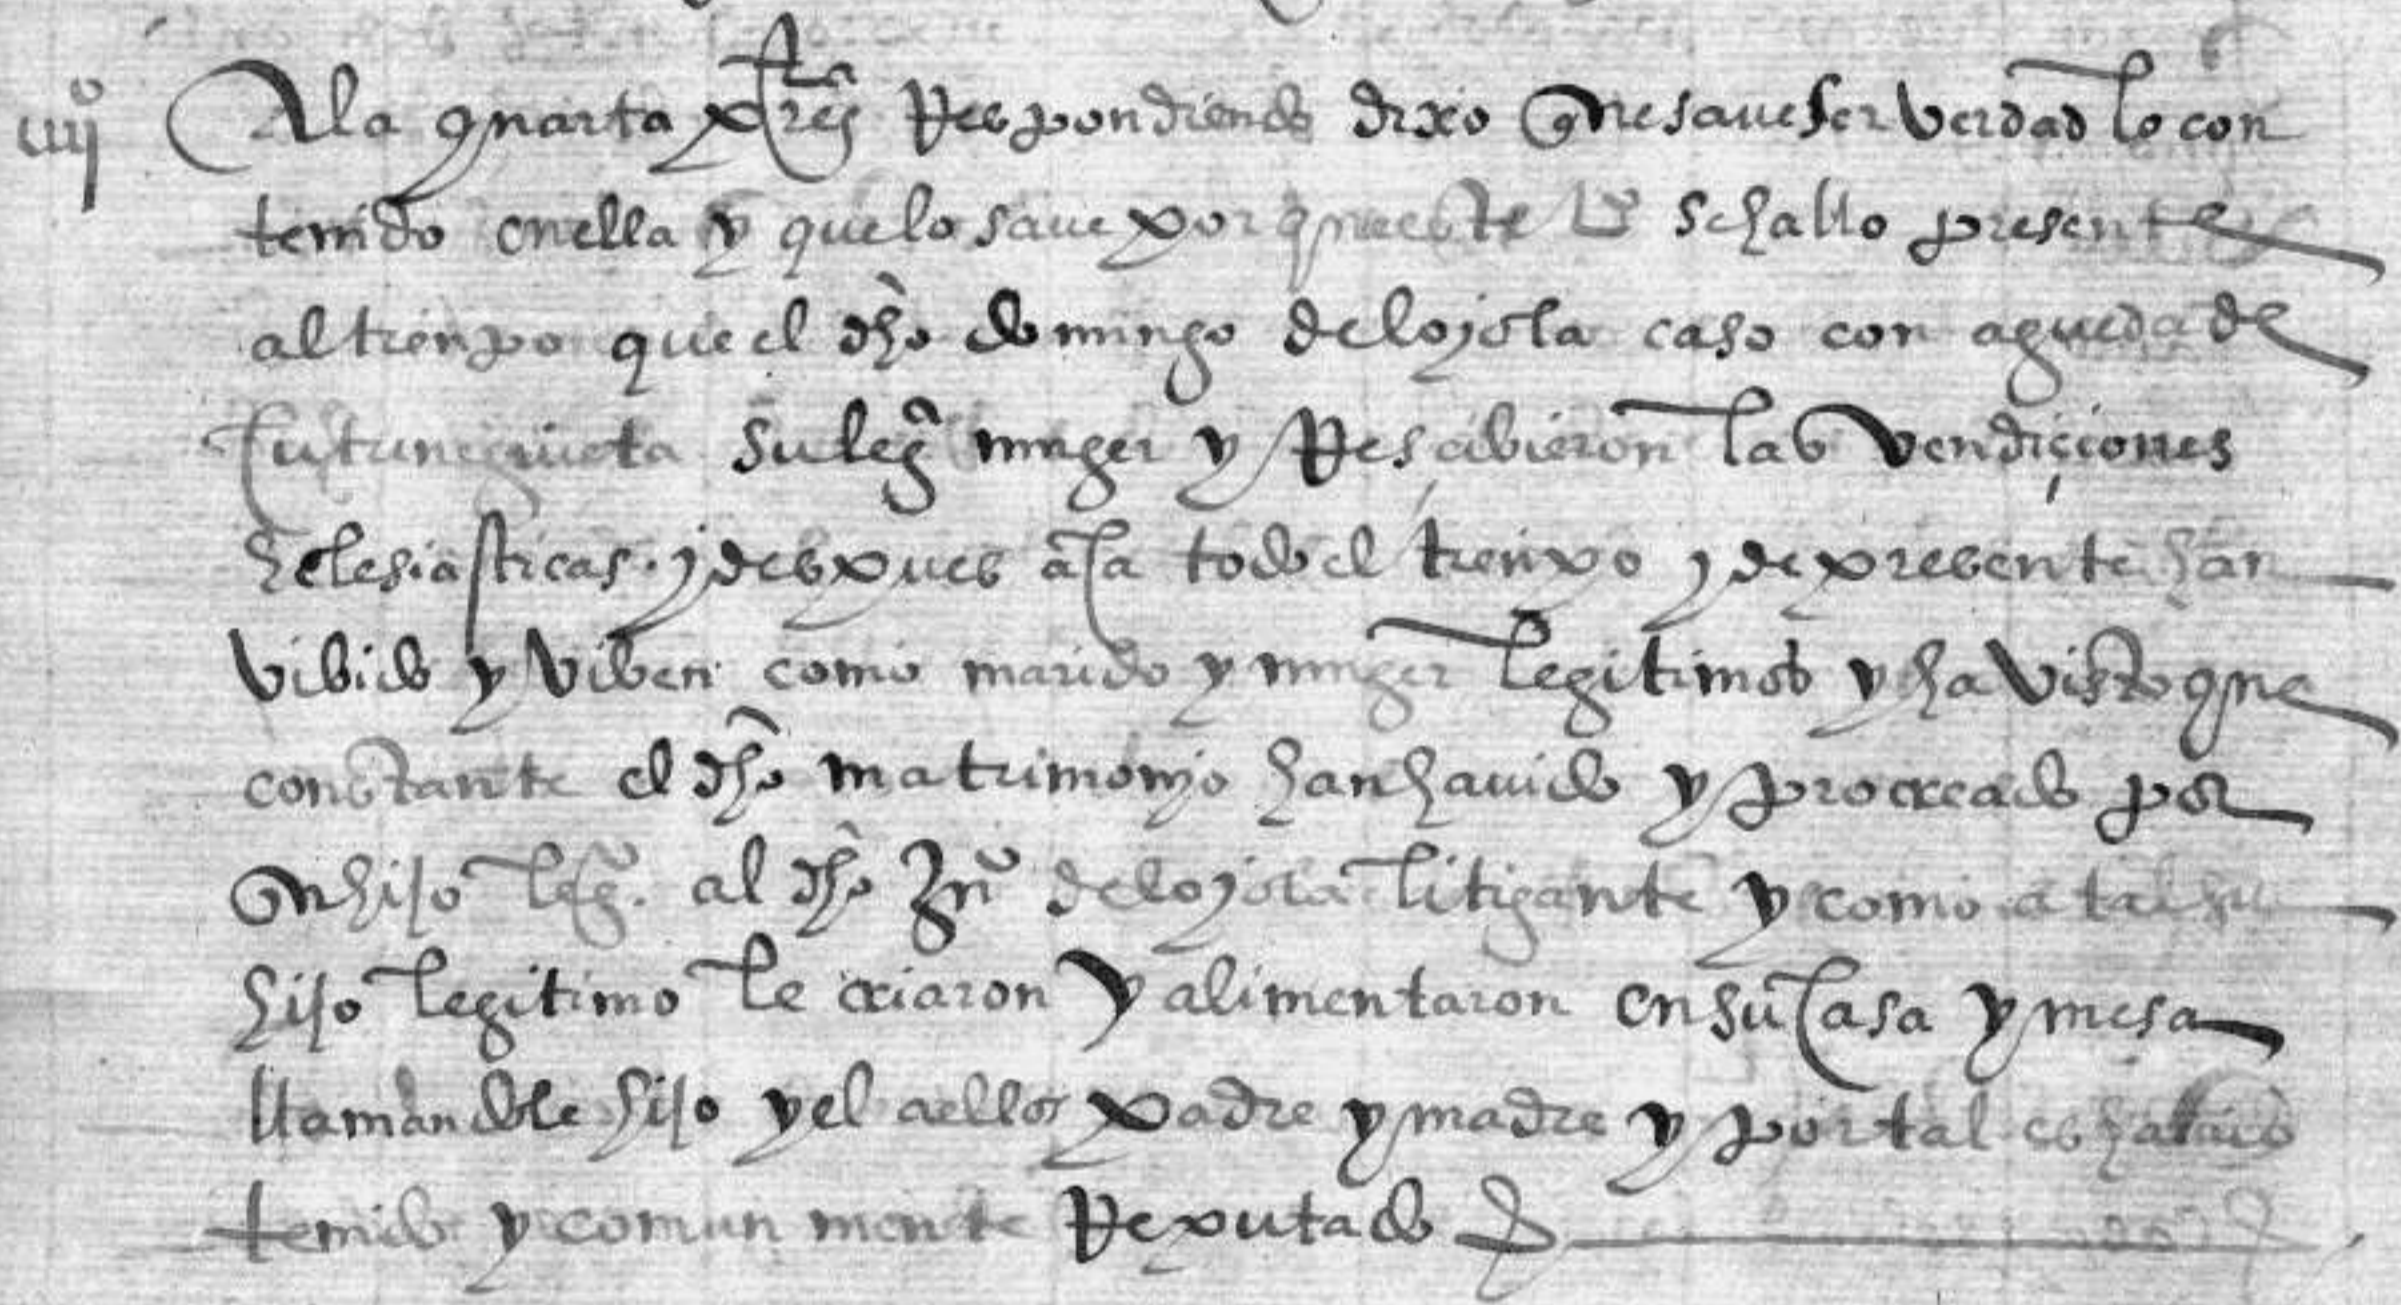 iiijº A la quarta pregª Respondiendo dixo que saue ser verdad lo con
tenido en ella y que lo saue por que este tº se hallo presente
al tienpo que el dho domingo de loyola caso con agueda de
su legª muger y Resçibieron las vendiçiones
heclesiasticas. y despues aca todo el tienpo y de presente han
vibido y viben como marido y muger legitimos y ha visto que
constante el dho matrimonjo han hauido y procreado por
un hijo legº. al dho Juº de loyola litigante y como a tal su
hijo legitimo le criaron y alimentaron en su casa y mesa
llamandole hijo y el a ellos padre y madre y por tal es hauido
tenido y comun mente Reputado